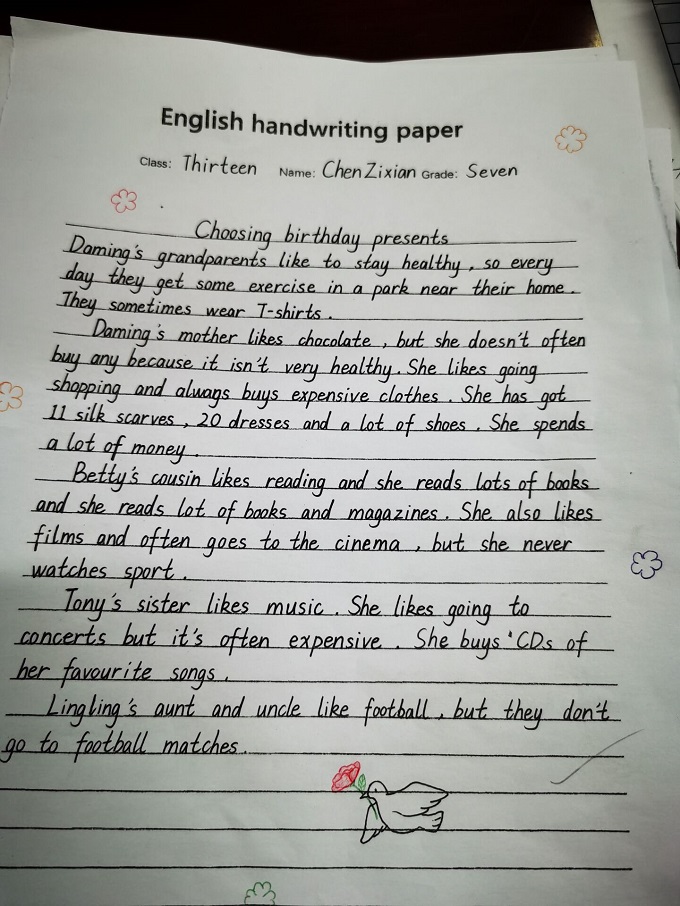 English handwriting paper
Class: Thirteen Name: Chen Zixian Grade: Seven
Choosing birthday presents
Daming's grandparents like to stay healthy, so every
day they get some exercise in a park near their home.
They sometimes wear T-shirts.
Daming's mother likes chocolate, but she doesn't often
buy any because it isn't very healthy. She likes going
shopping and always buys expensive clothes. She has got
11 silk scarves, 20 dresses and a lot of shoes. She spends
a lot of money.
Betty's cousin likes reading and she reads lots of books
and she reads lot of books and magazines. She also likes
films and often goes to the cinema, but she never
watches sport.
Tony's sister likes music. She likes going to
concerts but it's often expensive. She buys CDs of
her favourite songs.
Lingling's aunt and uncle like football, but they don't
go to football matches.